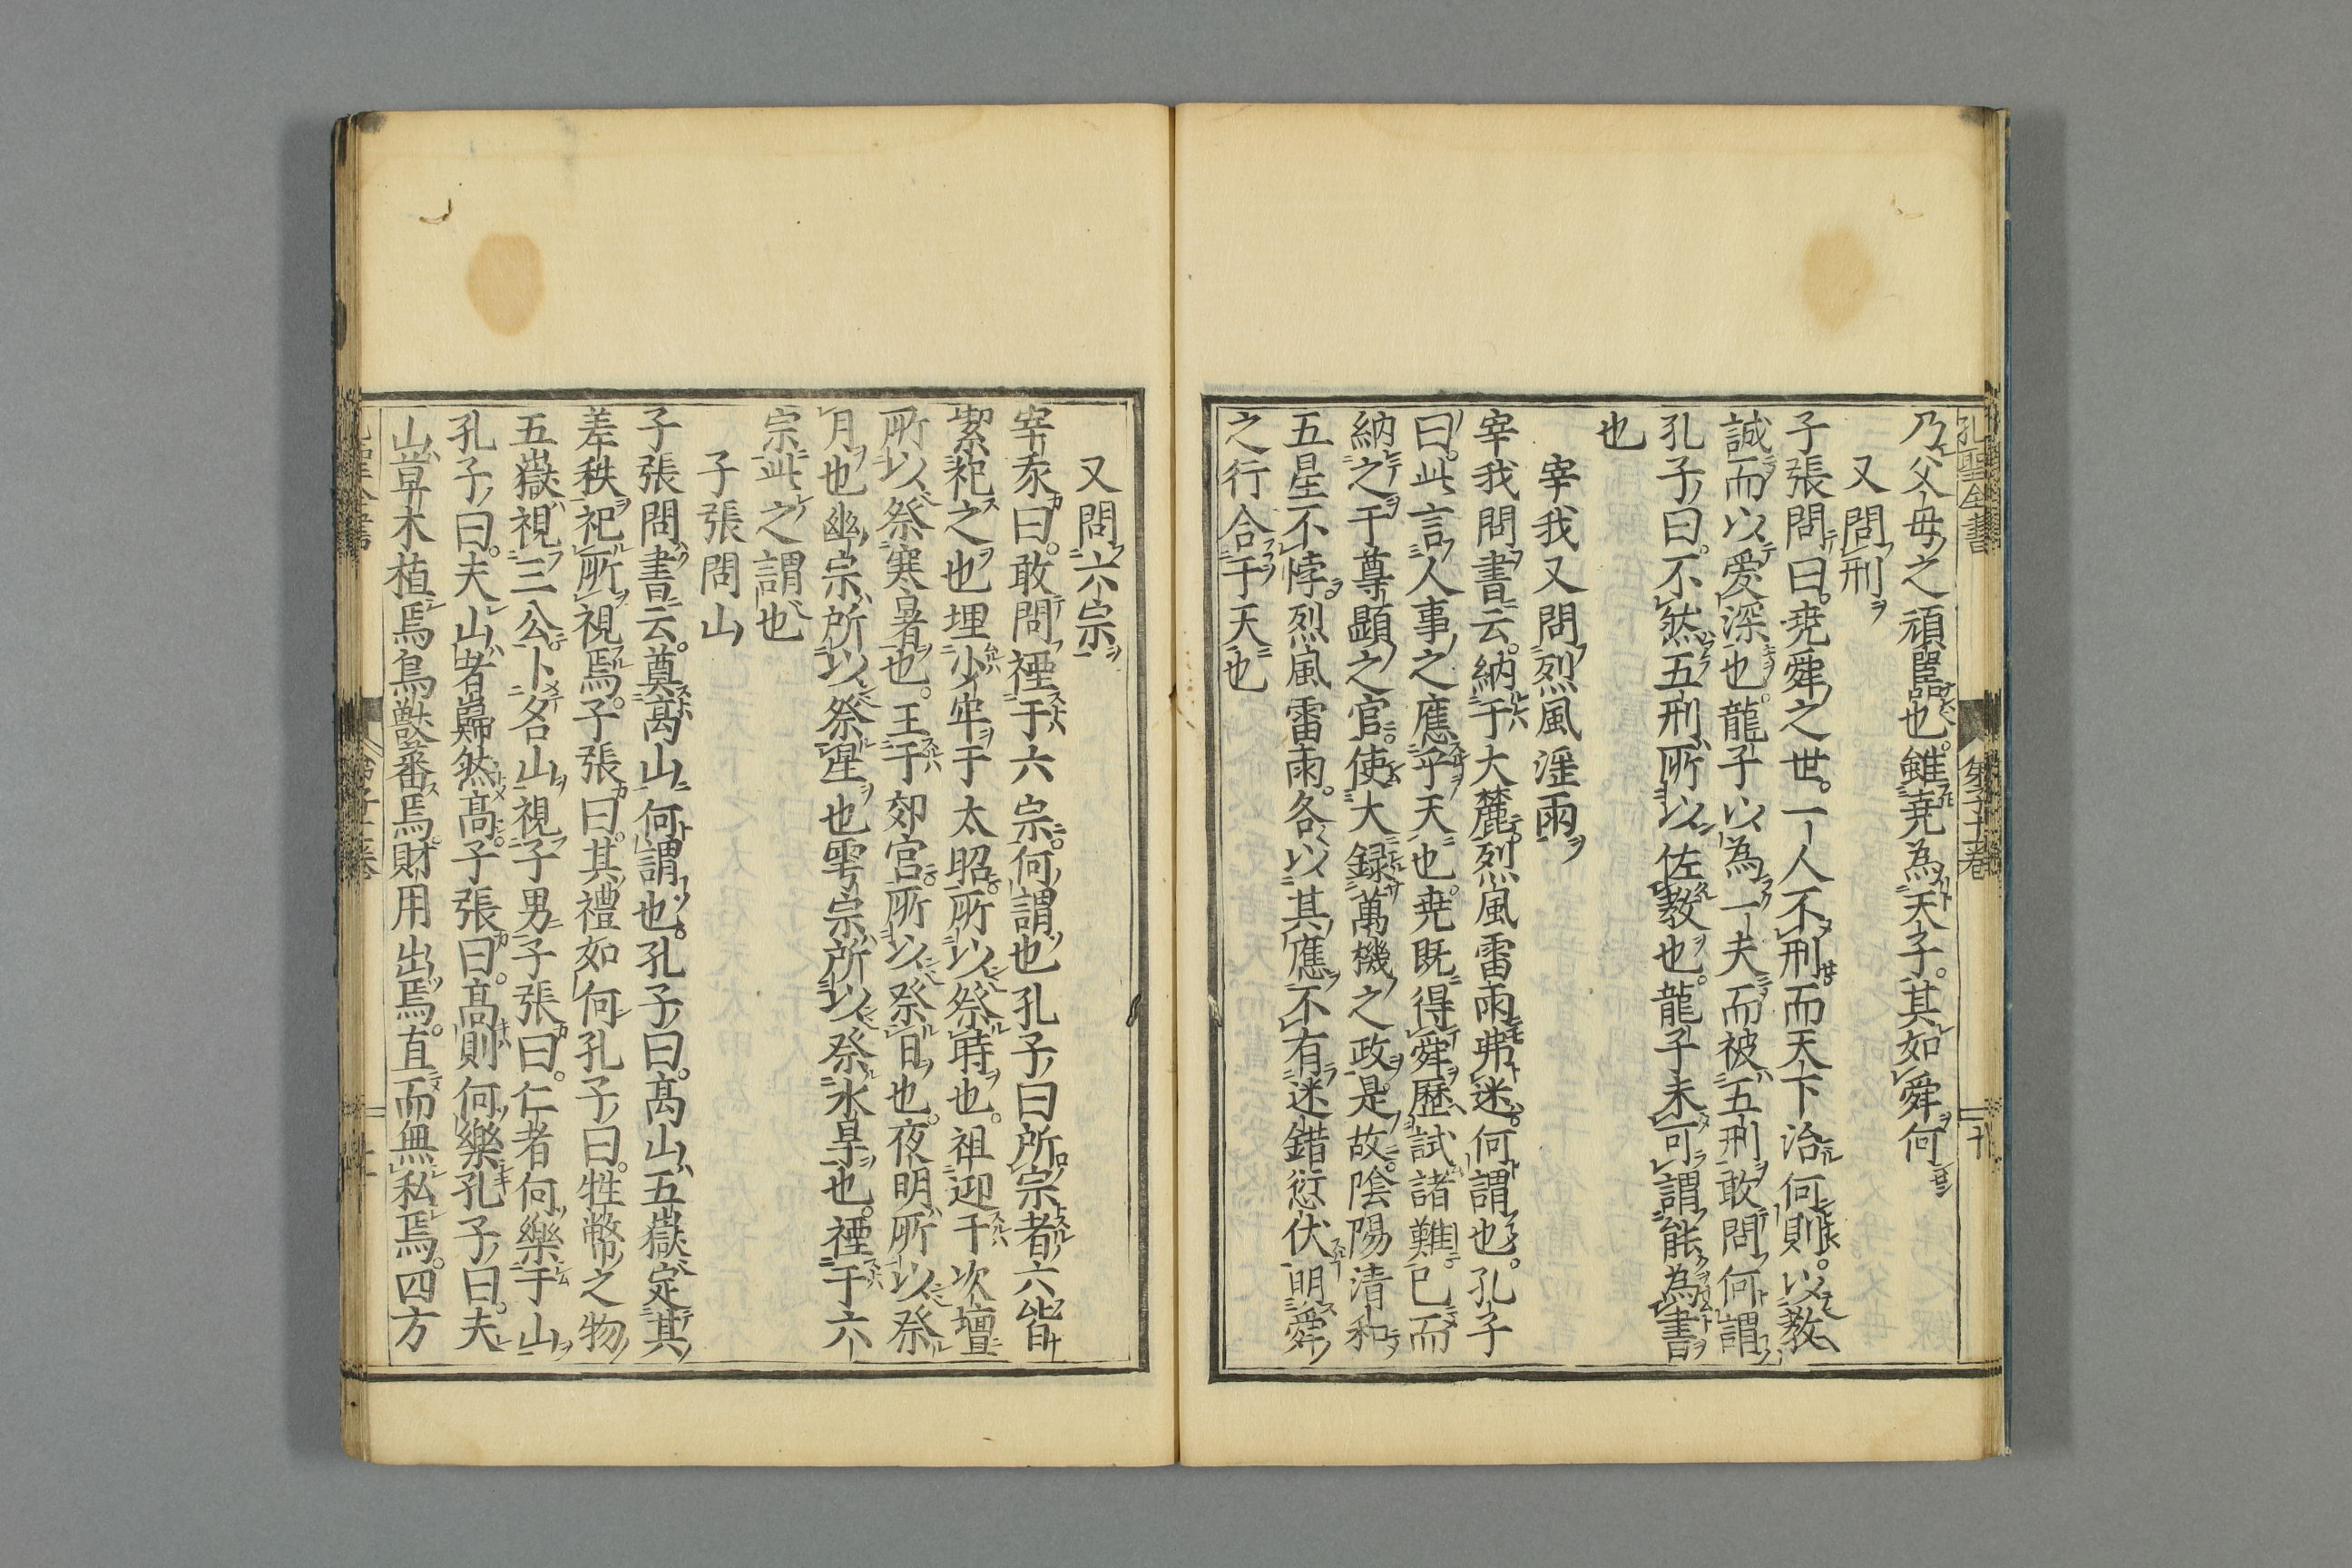 孔聖全書
第二十二卷
乃父母之頑嚚也雖堯為天子其如舜何
又問刑
子張問曰堯舜之世一人不刑而天下治何則以教
誠而以愛深也龍子以為一夫而被五刑敢問何謂
孔子曰不然五刑所以佐教也龍子未可謂能為書
也
宰我又問烈風淫雨
宰我問書云納于大麓烈風雷雨弗迷何謂也孔子
曰此言人事之應乎天也堯既得舜歷試諸難已而
納之于尊顯之官使大録萬機之政是故陰陽清和
五星不悖烈風雷雨各以其應不有迷錯愆伏明舜
之行合于天也
又問六宗
宰我曰敢問禋于六宗何謂也孔子曰所宗者六皆
潔祀之也埋少牢于太昭所以祭時也祖迎于坎壇
所以祭寒暑也王于郊宮所以祭日也夜明所以祭
月也幽宗所以祭星也雩宗所以祭水旱也禋于六
宗此之謂也
子張問山
子張問書云奠高山何謂也孔子曰高山五嶽定其
差秩祀所視焉子張曰其禮如何孔子曰牲幣之物
五嶽視三公小名山視子男子張曰仁者何樂于山
孔子曰夫山者巋然高子張曰高則何樂孔子曰夫
山草木植焉鳥獣蕃焉財用出焉直而無私焉四方